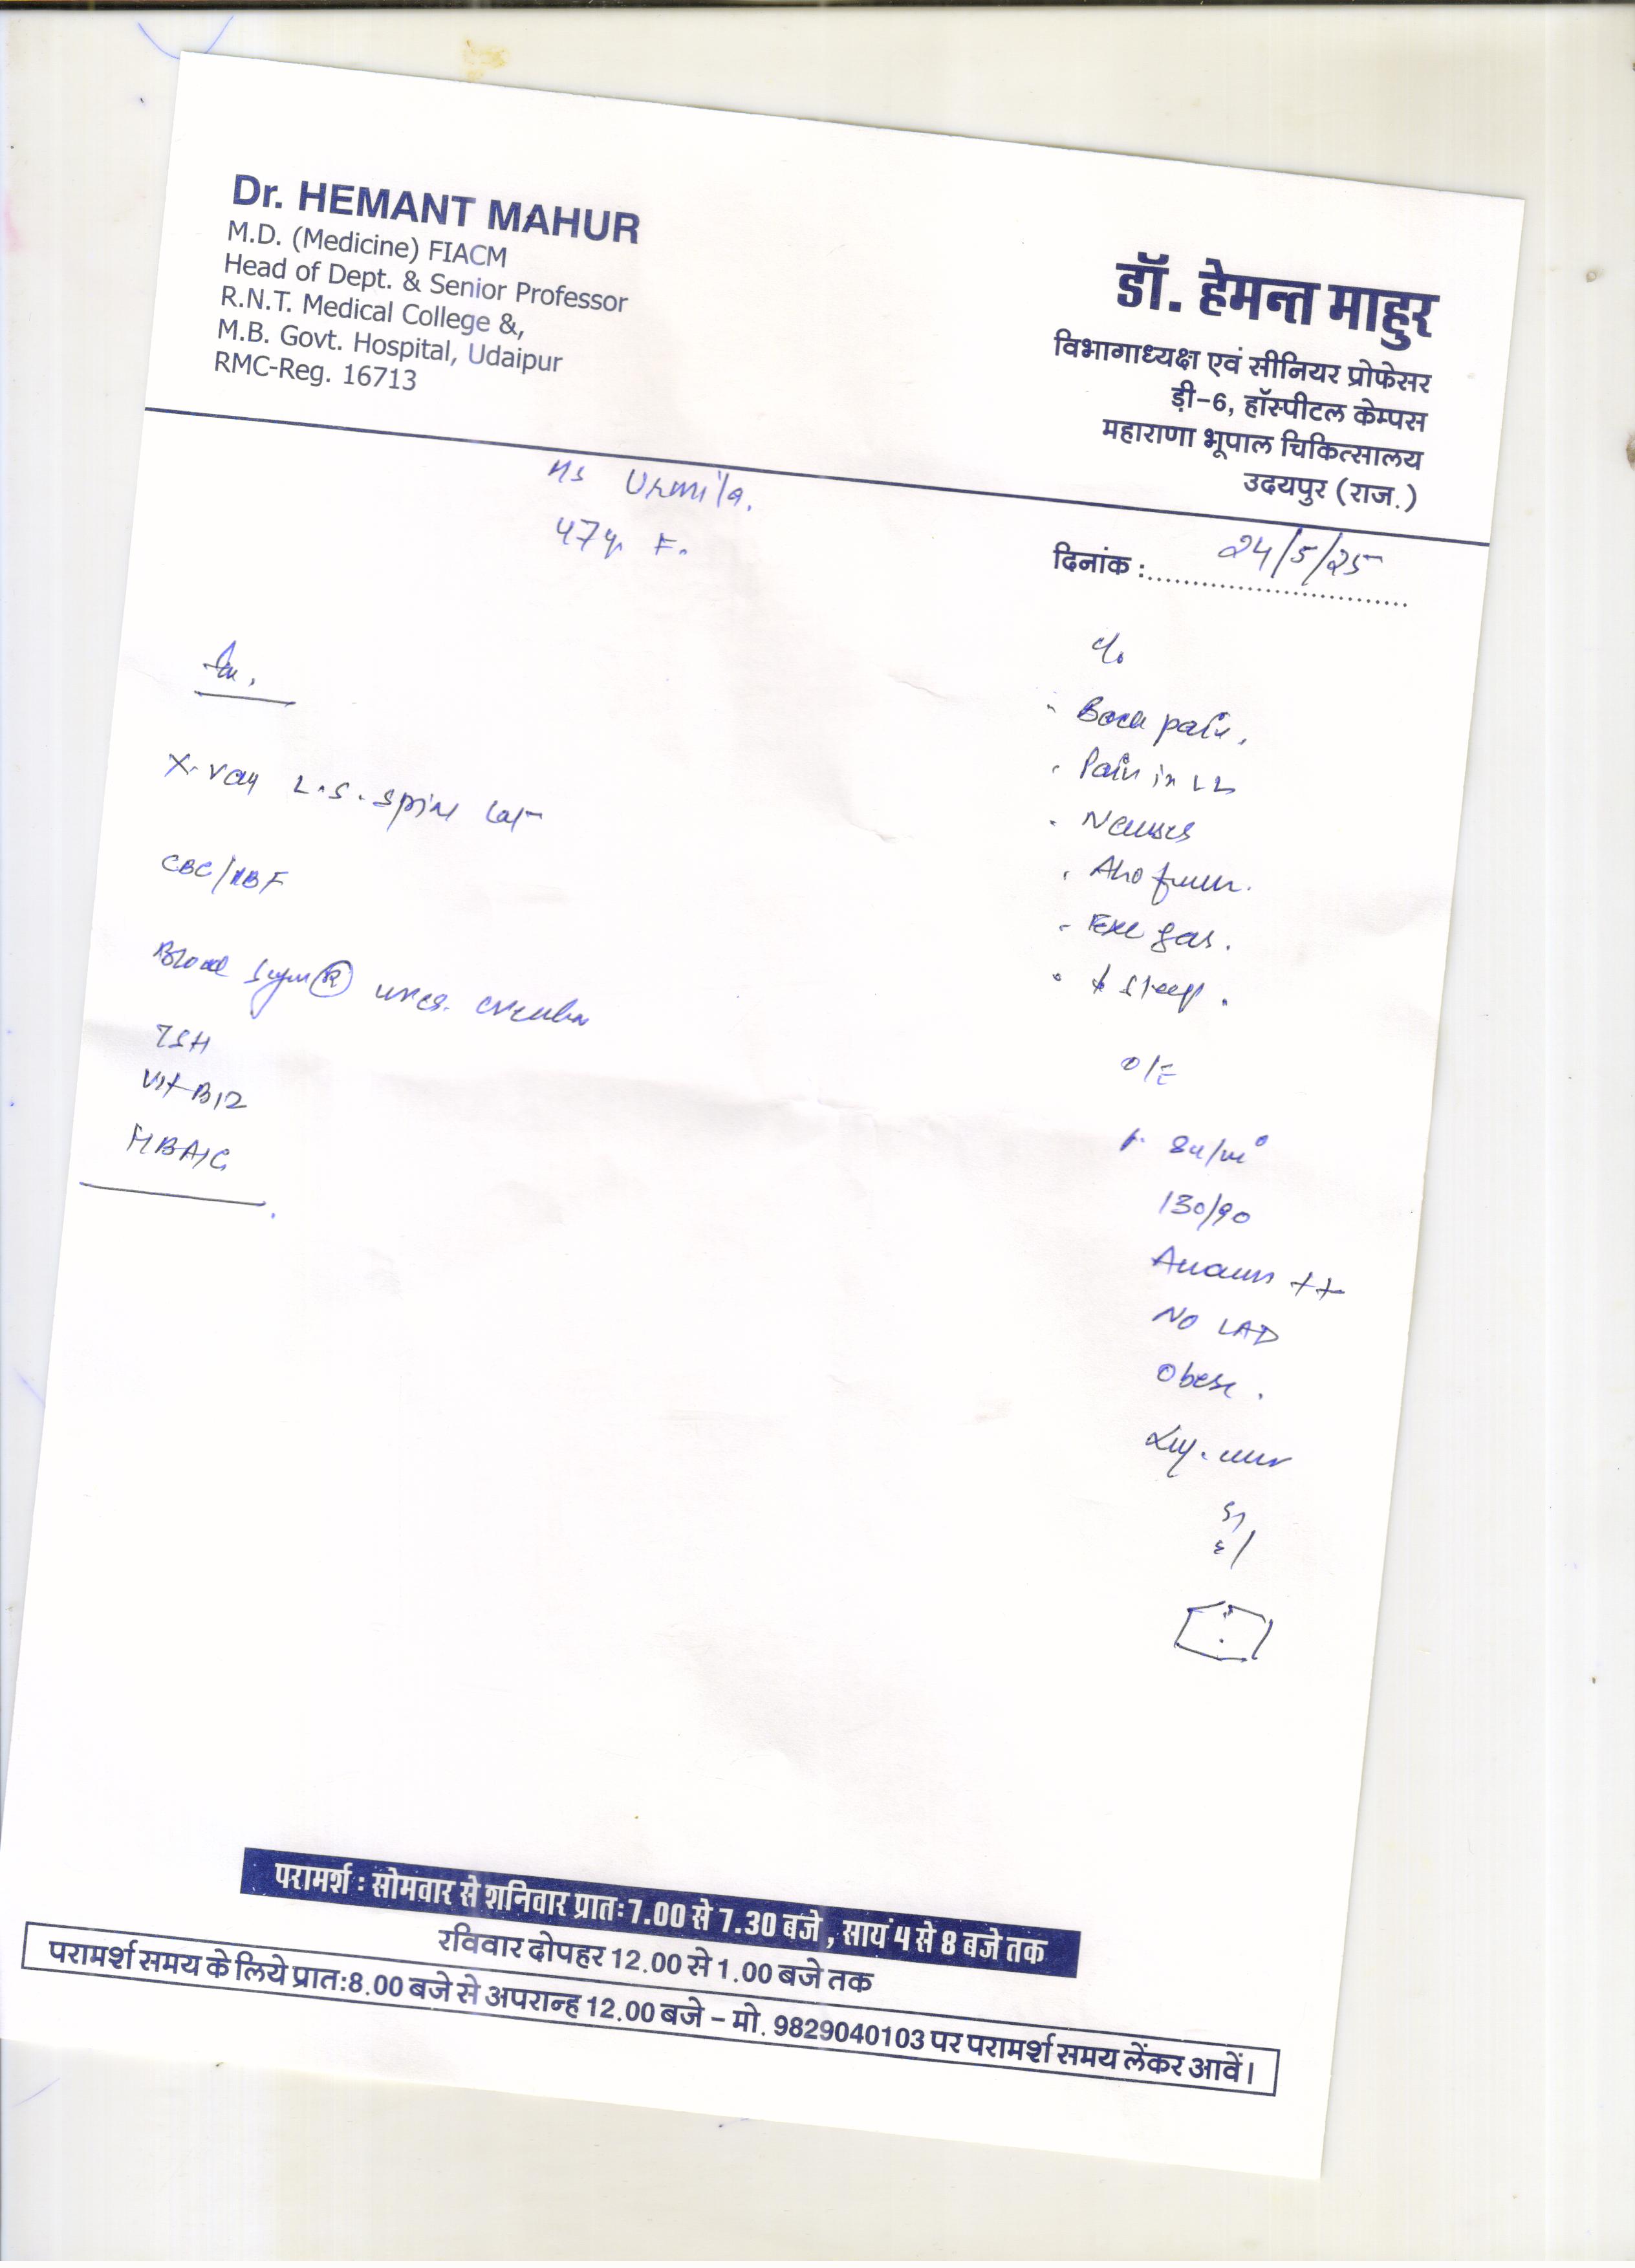 Dr. HEMANT MAHUR
M.D. (Medicine) FIACM
Head of Dept. & Senior Professor
R.N.T. Medical College &,
M.B. Govt. Hospital, Udaipur
RMC-Reg. 16713
डॉ. हेमन्त माहुर
विभागाध्यक्ष एवं सीनियर प्रोफेसर
ड़ी-6, हॉस्पीटल केम्पस
महाराणा भूपाल चिकित्सालय
उदयपुर (राज.)
Ms Urmila.
47y. F.
दिनांक : 24/5/25
X-ray L.S. spine Lat
CBC/PBF
Blood Sugar (R) urea. creatin
TSH
Vit B12
HBA1C
c/o
Back pain.
Pain in LL
Nausea
Exc gas.
↓ sleep.
O/E
P. 84/m
130/90
Anaemia ++
NO LAD
Obese.
परामर्श : सोमवार से शनिवार प्रातः 7.00 से 7.30 बजे , सायं 4 से 8 बजे तक
रविवार दोपहर 12.00 से 1.00 बजे तक
परामर्श समय के लिये प्रात:8.00 बजे से अपरान्ह 12.00 बजे – मो. 9829040103 पर परामर्श समय लेंकर आवें।